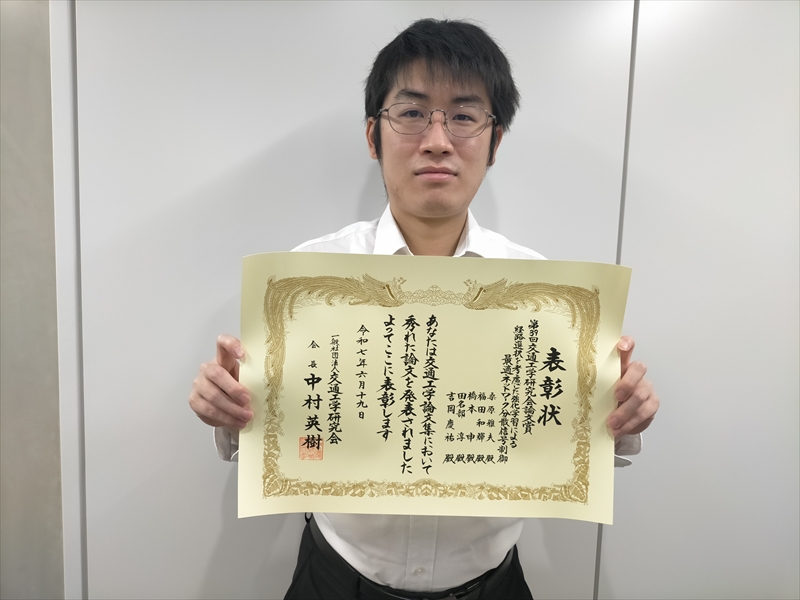 表彰状
第39回交通工学研究会論文賞
経路選択を考慮した強化学習による
最適ネットワーク分散信号制御
桑原雅夫殿
福田和輝殿
橋本申殿
田名部淳殿
吉岡慶祐殿
あなたは交通工学論文集において
秀れた論文を発表されました
よってここに表彰します
令和七年六月十九日
一般社団法人交通工学研究会
会長 中村英樹